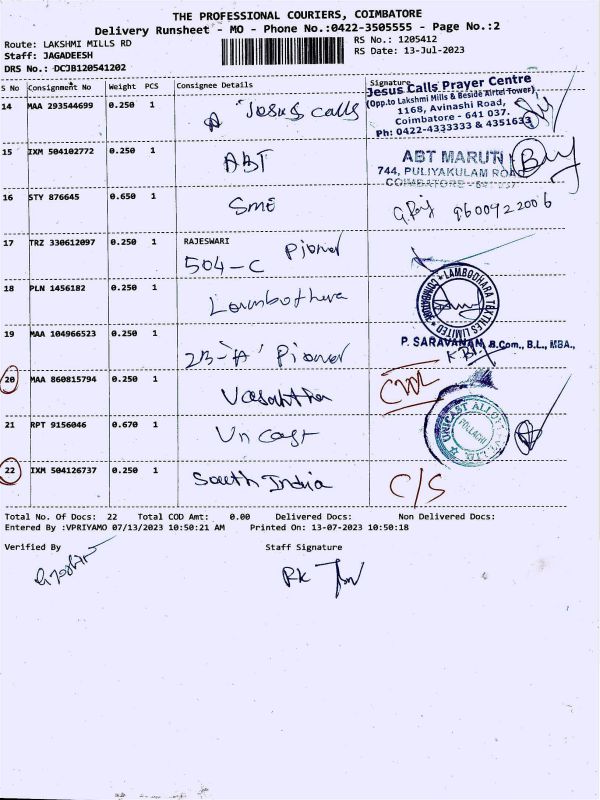 THE PROFESSIONAL COURIERS, COIMBATORE
Delivery Runsheet - MO - Phone No.:0422-3505555 - Page No.:2
Route: LAKSHMI MILLS RD
RS No.: 1205412
Staff: JAGADEESH
RS Date: 13-Jul-2023
DRS No.: DCJB120541202
S No Consignment No Weight PCS Consignee Details Signature
14 MAA 293544699 0.250 1 Jesus calls
Jesus Calls Prayer Centre
(Opp.to Lakshmi Mills & Beside Airtel Tower)
1168, Avinashi Road,
Coimbatore - 641 037.
Ph: 0422-4333333 & 4351633
15 IXM 504102772 0.250 1 ABT
ABT MARUTI
744, PULIYAKULAM ROAD
COIMBATORE - 641 037
16 STY 876645 0.650 1 SME
9600922006
17 TRZ 330612097 0.250 1 RAJESWARI
504-C
18 PLN 1456182 0.250 1
LAMBODHARA TEXTILES LIMITED
COIMBATORE
19 MAA 104966523 0.250 1 2B-'A'
P. SARAVANAN, B.Com., B.L., MBA.,
20 MAA 860815794 0.250 1 Vasantha
21 RPT 9156046 0.670 1 Uncast
UNICAST ALLOYS
POLLACHI
22 IXM 504126737 0.250 1 South India C/S
Total No. Of Docs: 22 Total COD Amt: 0.00 Delivered Docs: Non Delivered Docs:
Entered By :VPRIYAMO 07/13/2023 10:50:21 AM Printed On: 13-07-2023 10:50:18
Verified By Staff Signature
RK